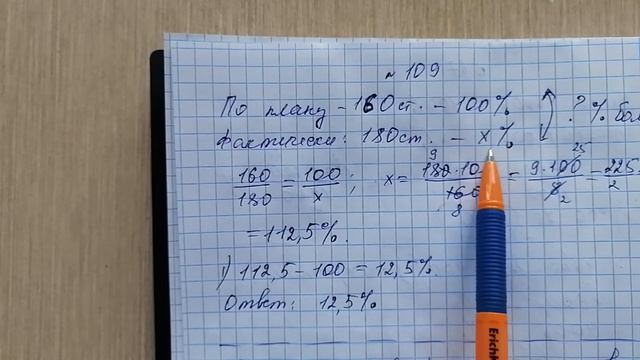 № 109
По плану - 160 ст. - 100% ? % бол
Фактически: 180 ст. - x%
160/180 = 100/x ; x = 180·10 / 160 = 9·100 / 8 = 225 / 2
9 25 8 2
= 112,5%.
1) 112,5 - 100 = 12,5%.
Ответ: 12,5%
Erich